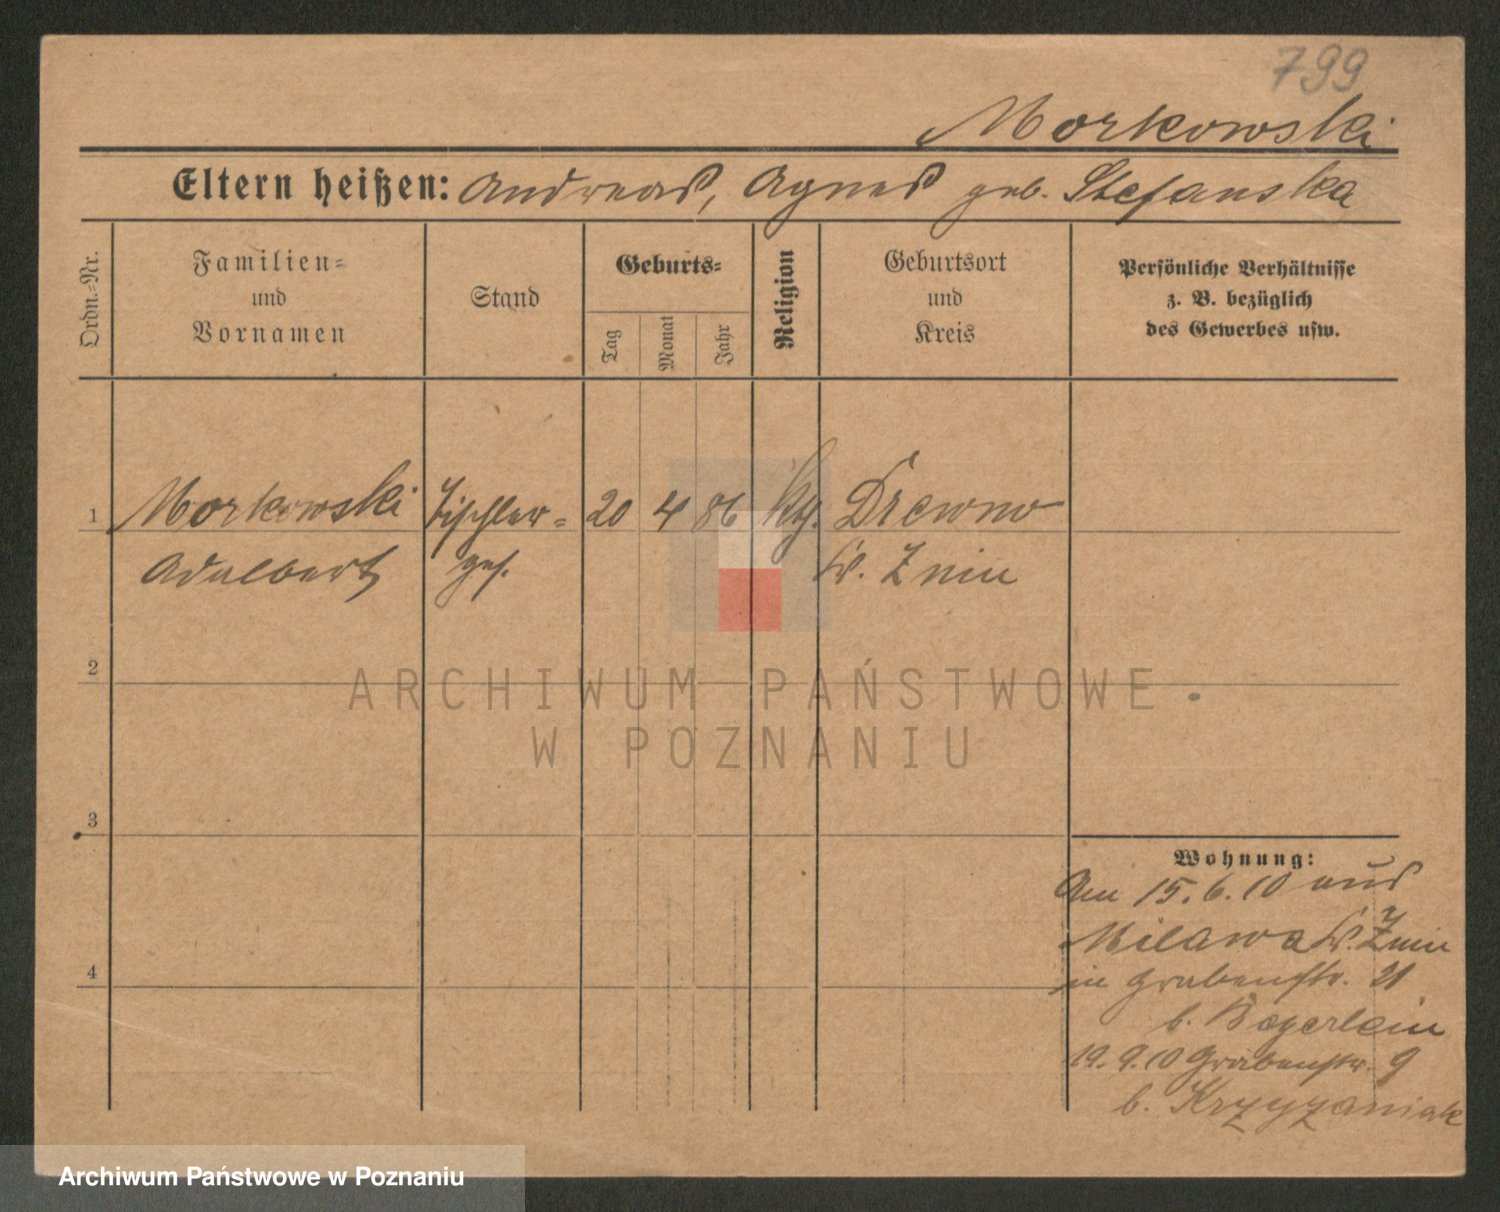 799
Morkowski
Eltern heißen: Andreas, Agnes geb. Stefanska
Ordn.-Nr.
Familien- und Vornamen
Stand
Geburts-
Tag
Monat
Jahr
Religion
Geburtsort und Kreis
Persönliche Verhältnisse
z. B. bezüglich
des Gewerbes usw.
1 Morkowski Tischler- 20 4 86 kth. Drewno
Adalbert ges. Kr. Znin
2
3
4
Wohnung:
Am 15.6.10 aus
Milawa Kr. Znin
in Grabenstr. 21
b. Bogerlein
19.9.10 Grabenstr. 9
b. Krzyzaniak
ARCHIWUM PAŃSTWOWE
W POZNANIU
Archiwum Państwowe w Poznaniu